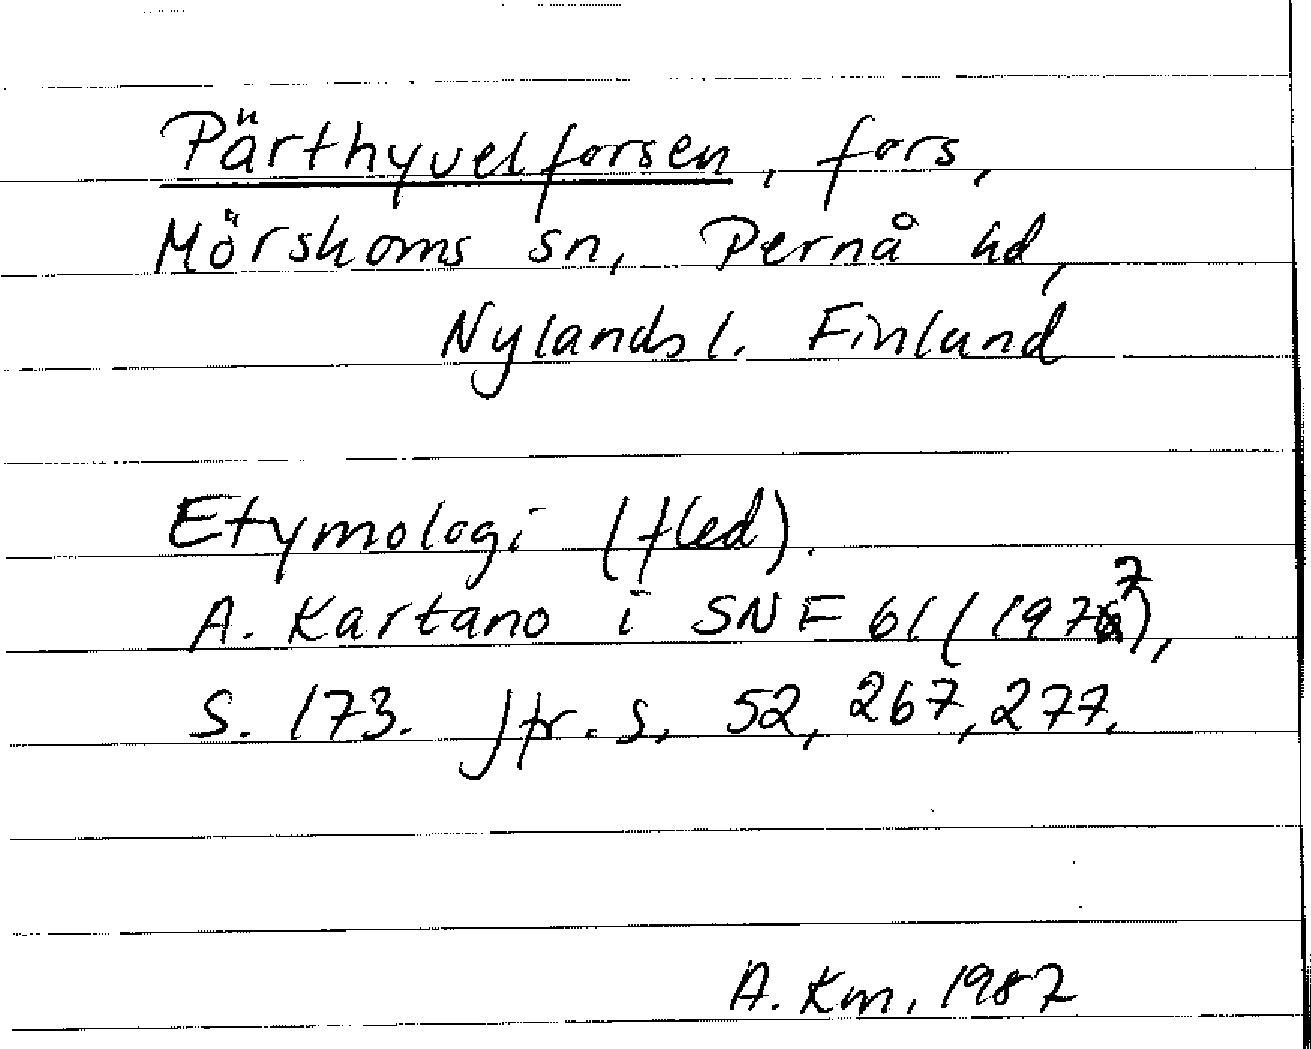 Pärthyvelforsen, fors,
Mörskoms sn, Pernå hd,
Nylands l. Finland
Etymologi (fled).
A. Kartano i SNF 61 (1977),
S. 173. Jfr. s. 52, 267, 277.
A. Km, 1987